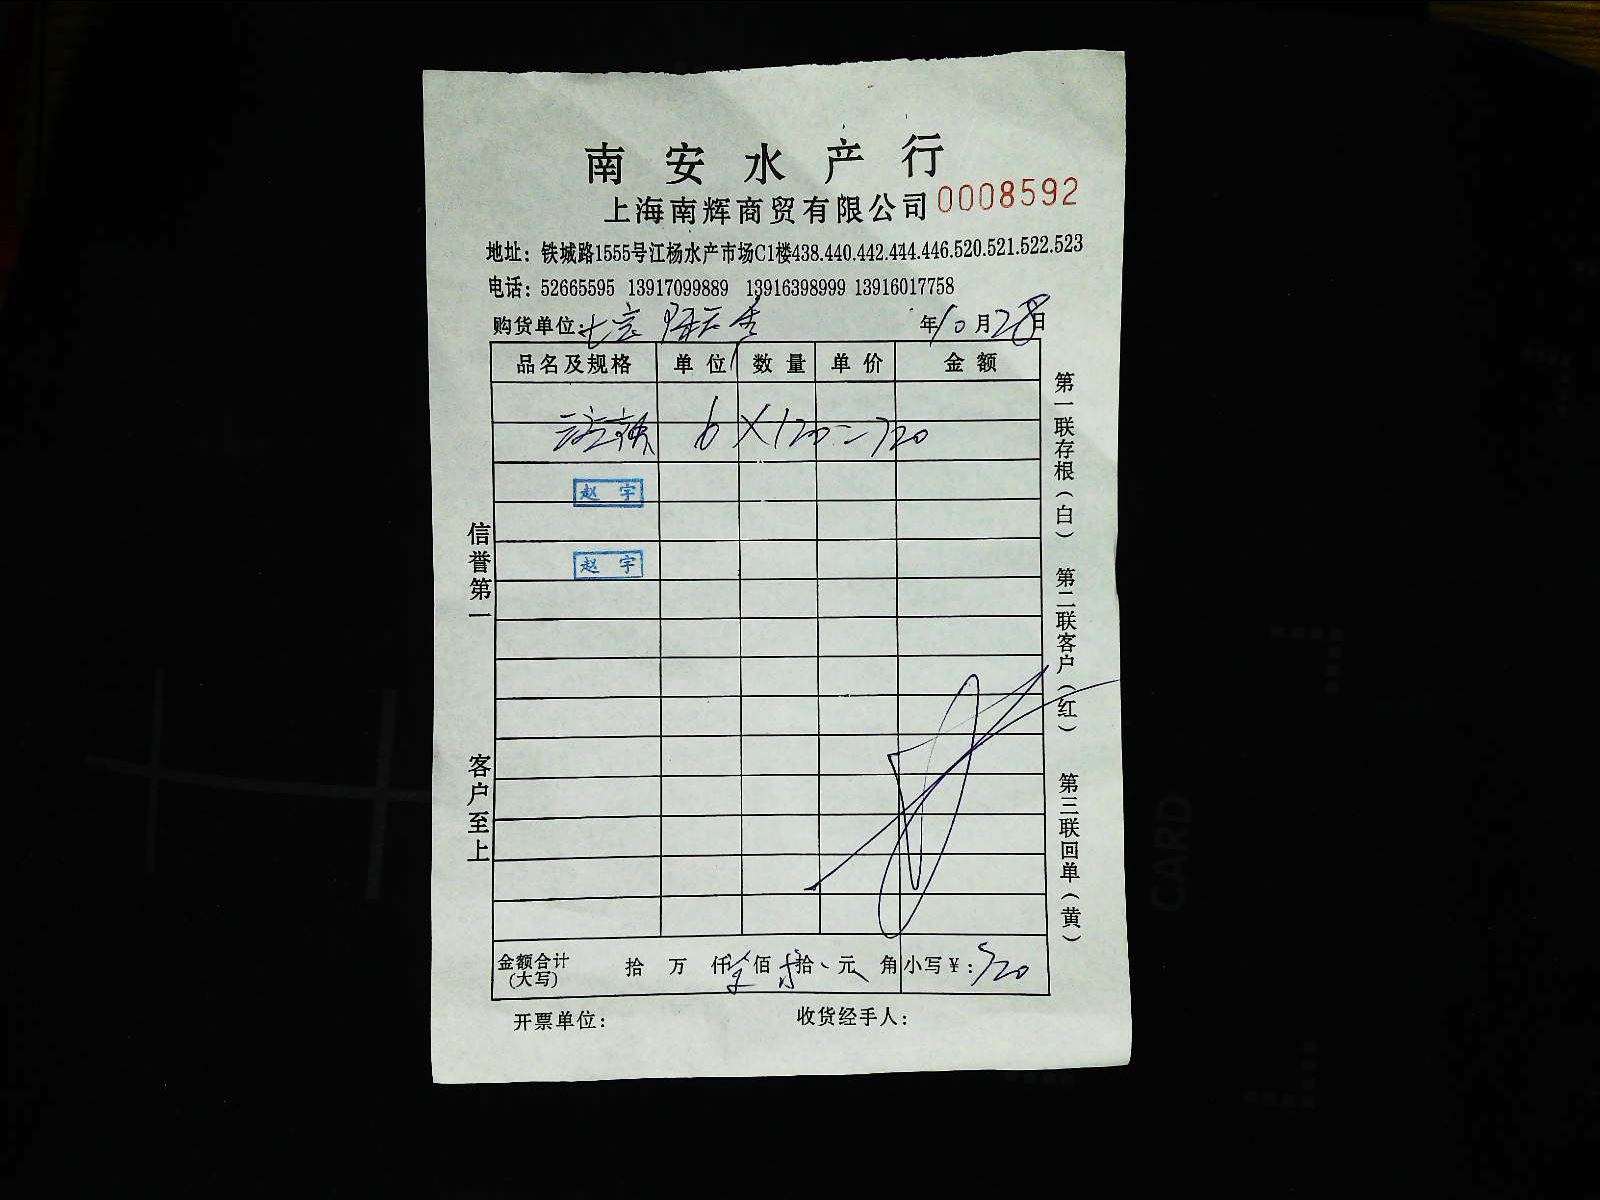 南安水产行
上海南辉商贸有限公司 0008592
地址：铁城路1555号江杨水产市场C1楼438.440.442.444.446.520.521.522.523
电话：52665595 13917099889 13916398999 13916017758
购货单位： 年10月28日
品名及规格 单位 数量 单价 金额
6×120=720
赵宇
赵宇
信誉第一
客户至上
第一联存根（白）
第二联客户（红）
第三联回单（黄）
金额合计（大写） 拾 万 仟 佰 拾 元 角 小写￥：720
开票单位： 收货经手人：